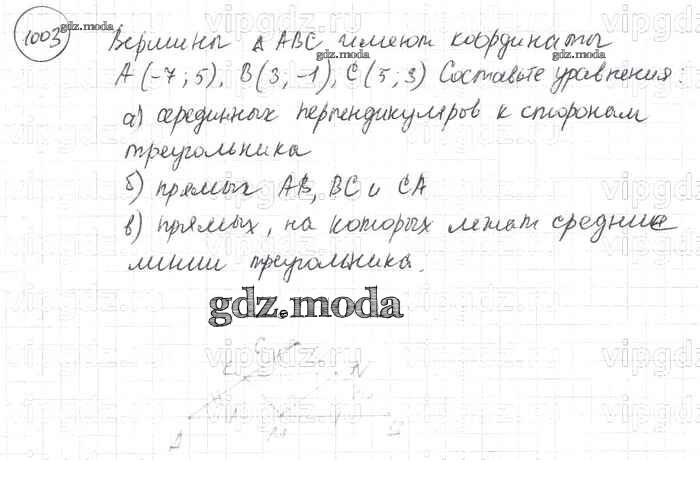 1003 gdz.moda
Вершины △ ABC имеют координаты
gdz.moda gdz.moda
A (-7; 5), B(3; -1), C(5; 3) Составьте уравнения:
а) серединных перпендикуляров к сторонам
треугольника
б) прямых AB, BC и CA
в) прямых, на которых лежат средние
линии треугольника.
gdz.moda